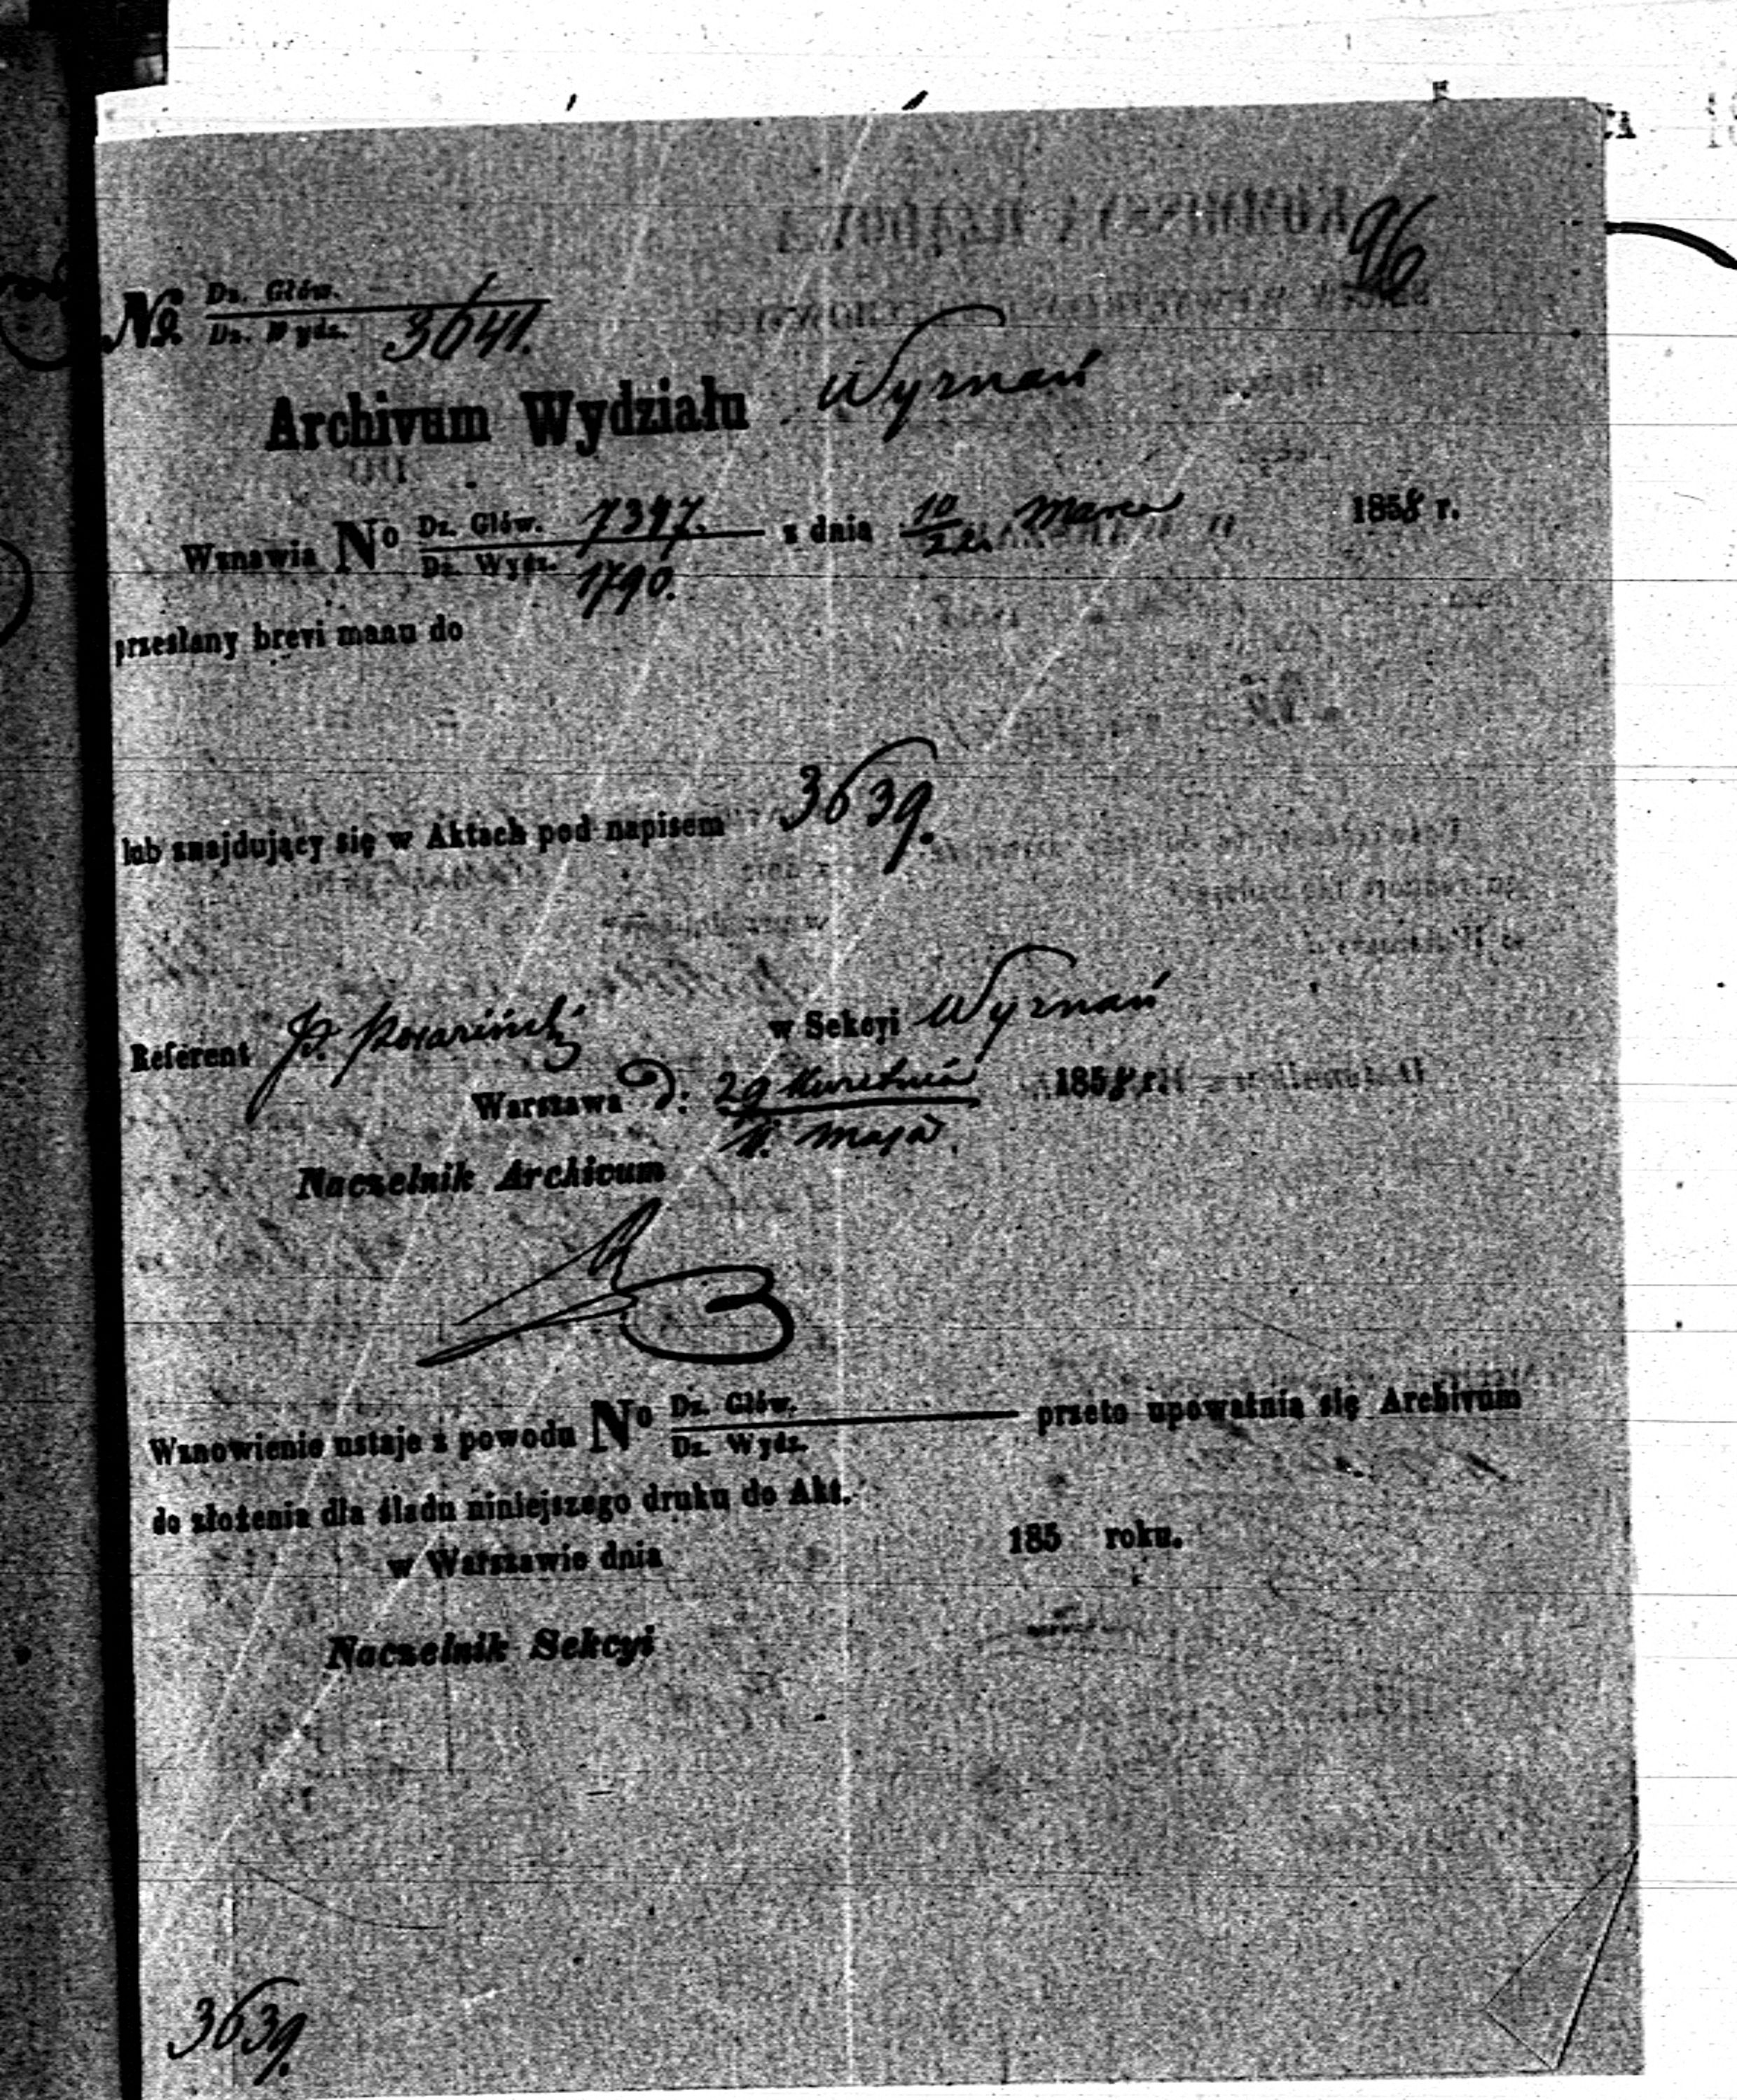 96
No. Dz. Głów.
Dz. Wydz. 3041.
Archivum Wydziału Wyznań
Wznawia No Dz. Głów. 7347. z dnia 10/22 Marca 1858 r.
Dz. Wydz. 1790.
przesłany brevi manu do
lub znajdujący się w Aktach pod napisem 3639.
Referent w Sekcyi Wyznań
Warszawa D: 29 Kwietnia 1858 r.
11. Maja.
Naczelnik Archivum
Wznowienie ustaje z powodu No Dz. Głów. przeto upoważnia się Archivum
Dz. Wydz.
do złożenia dla śladu niniejszego druku do Akt.
w Warszawie dnia 185 roku.
Naczelnik Sekcyi
3639.